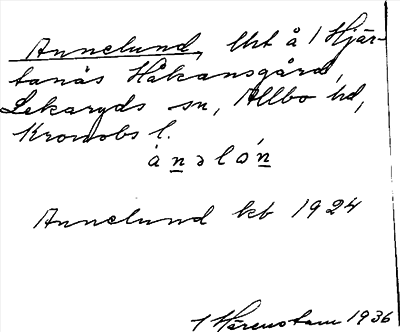 Annelund, lht å 1 Hjär-
tanäs Håkansgård,
Lekaryds sn, Allbo hd,
Kronobs l.
ànəlón
Annelund kb 1924
Härenstam 1936